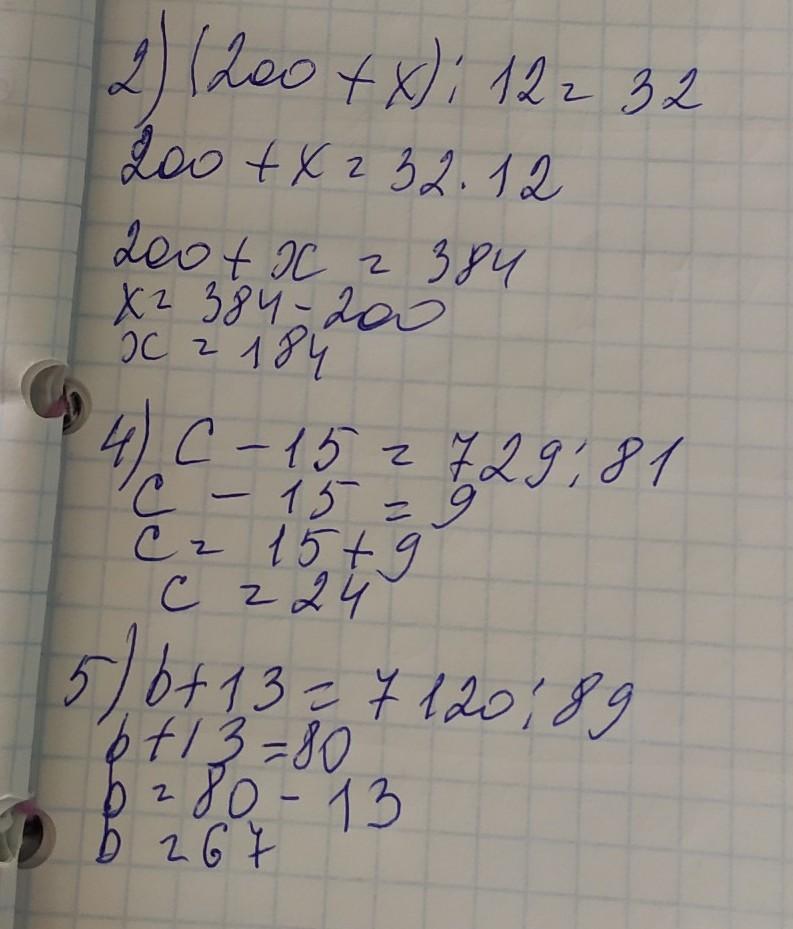 2) (200 + x) : 12 = 32
200 + x = 32 · 12
200 + x = 384
x = 384 - 200
x = 184
4) c - 15 = 729 : 81
c - 15 = 9
c = 15 + 9
c = 24
5) b + 13 = 7120 : 89
b + 13 = 80
b = 80 - 13
b = 67